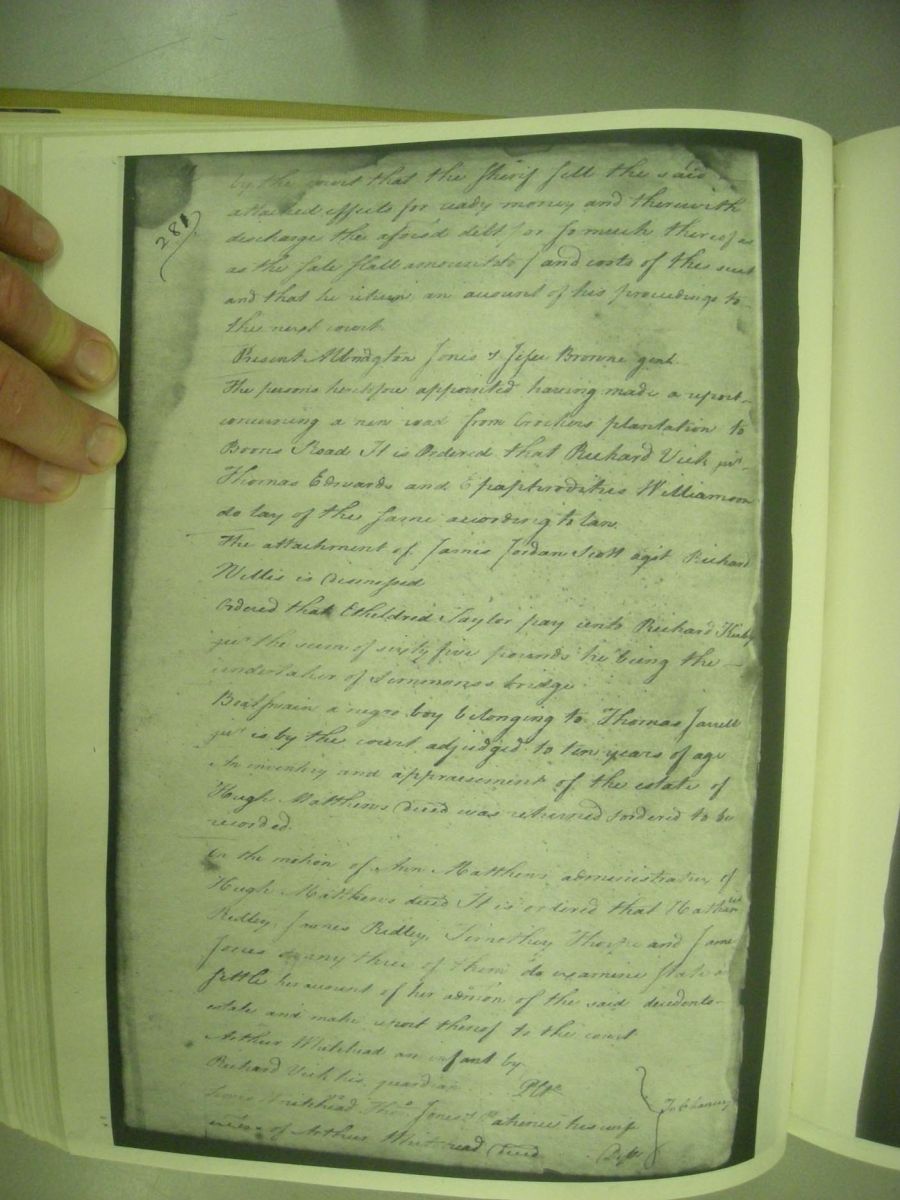 281
by the court that the Sherif sell the said
attached effects for ready money and therewith
discharge the afores'd debt (or so much thereof as
as the sale shall amount to) and costs of the suit
and that he return an account of his proceedings to
the next court
Present Albridgton Jones & Jesse Browne gent
The persons heretofore appointed having made a report
concerning a new road from Crockers plantation to
Boons Road It is Ordered that Richard Vick jur
Thomas Edwards and Epaphroditus Williamson
do lay of the same according to law
The attachment of James Jordan Scott agst Richard
Willis is dismissed
Ordered that Etheldred Taylor pay unto Richard Kirby
jur the sum of sixty five pounds he being the
undertaker of Simmonses bridge
a negro boy belonging to Thomas Jarrell
jur is by the court adjudged to ten years of age
An inventory and appraisement of the estate of
Hugh Matthews dece'd was returned & ordered to be
recorded.
On the motion of Ann Matthews administratrix of
Hugh Matthews dece'd It is ordered that Nathaniel
Ridley, James Ridley, Timothy Thorpe and Jame
Jones or any three of them do examine state &
settle her account of her admon of the said decedents
estate and make report thereof to the court
Arthur Whitehead an infant by
Richard Vick his guardian Plt
Lewis Whitehead Thos Jones & his wife
of Arthur Whitehead dece'd Defts
In Chancery